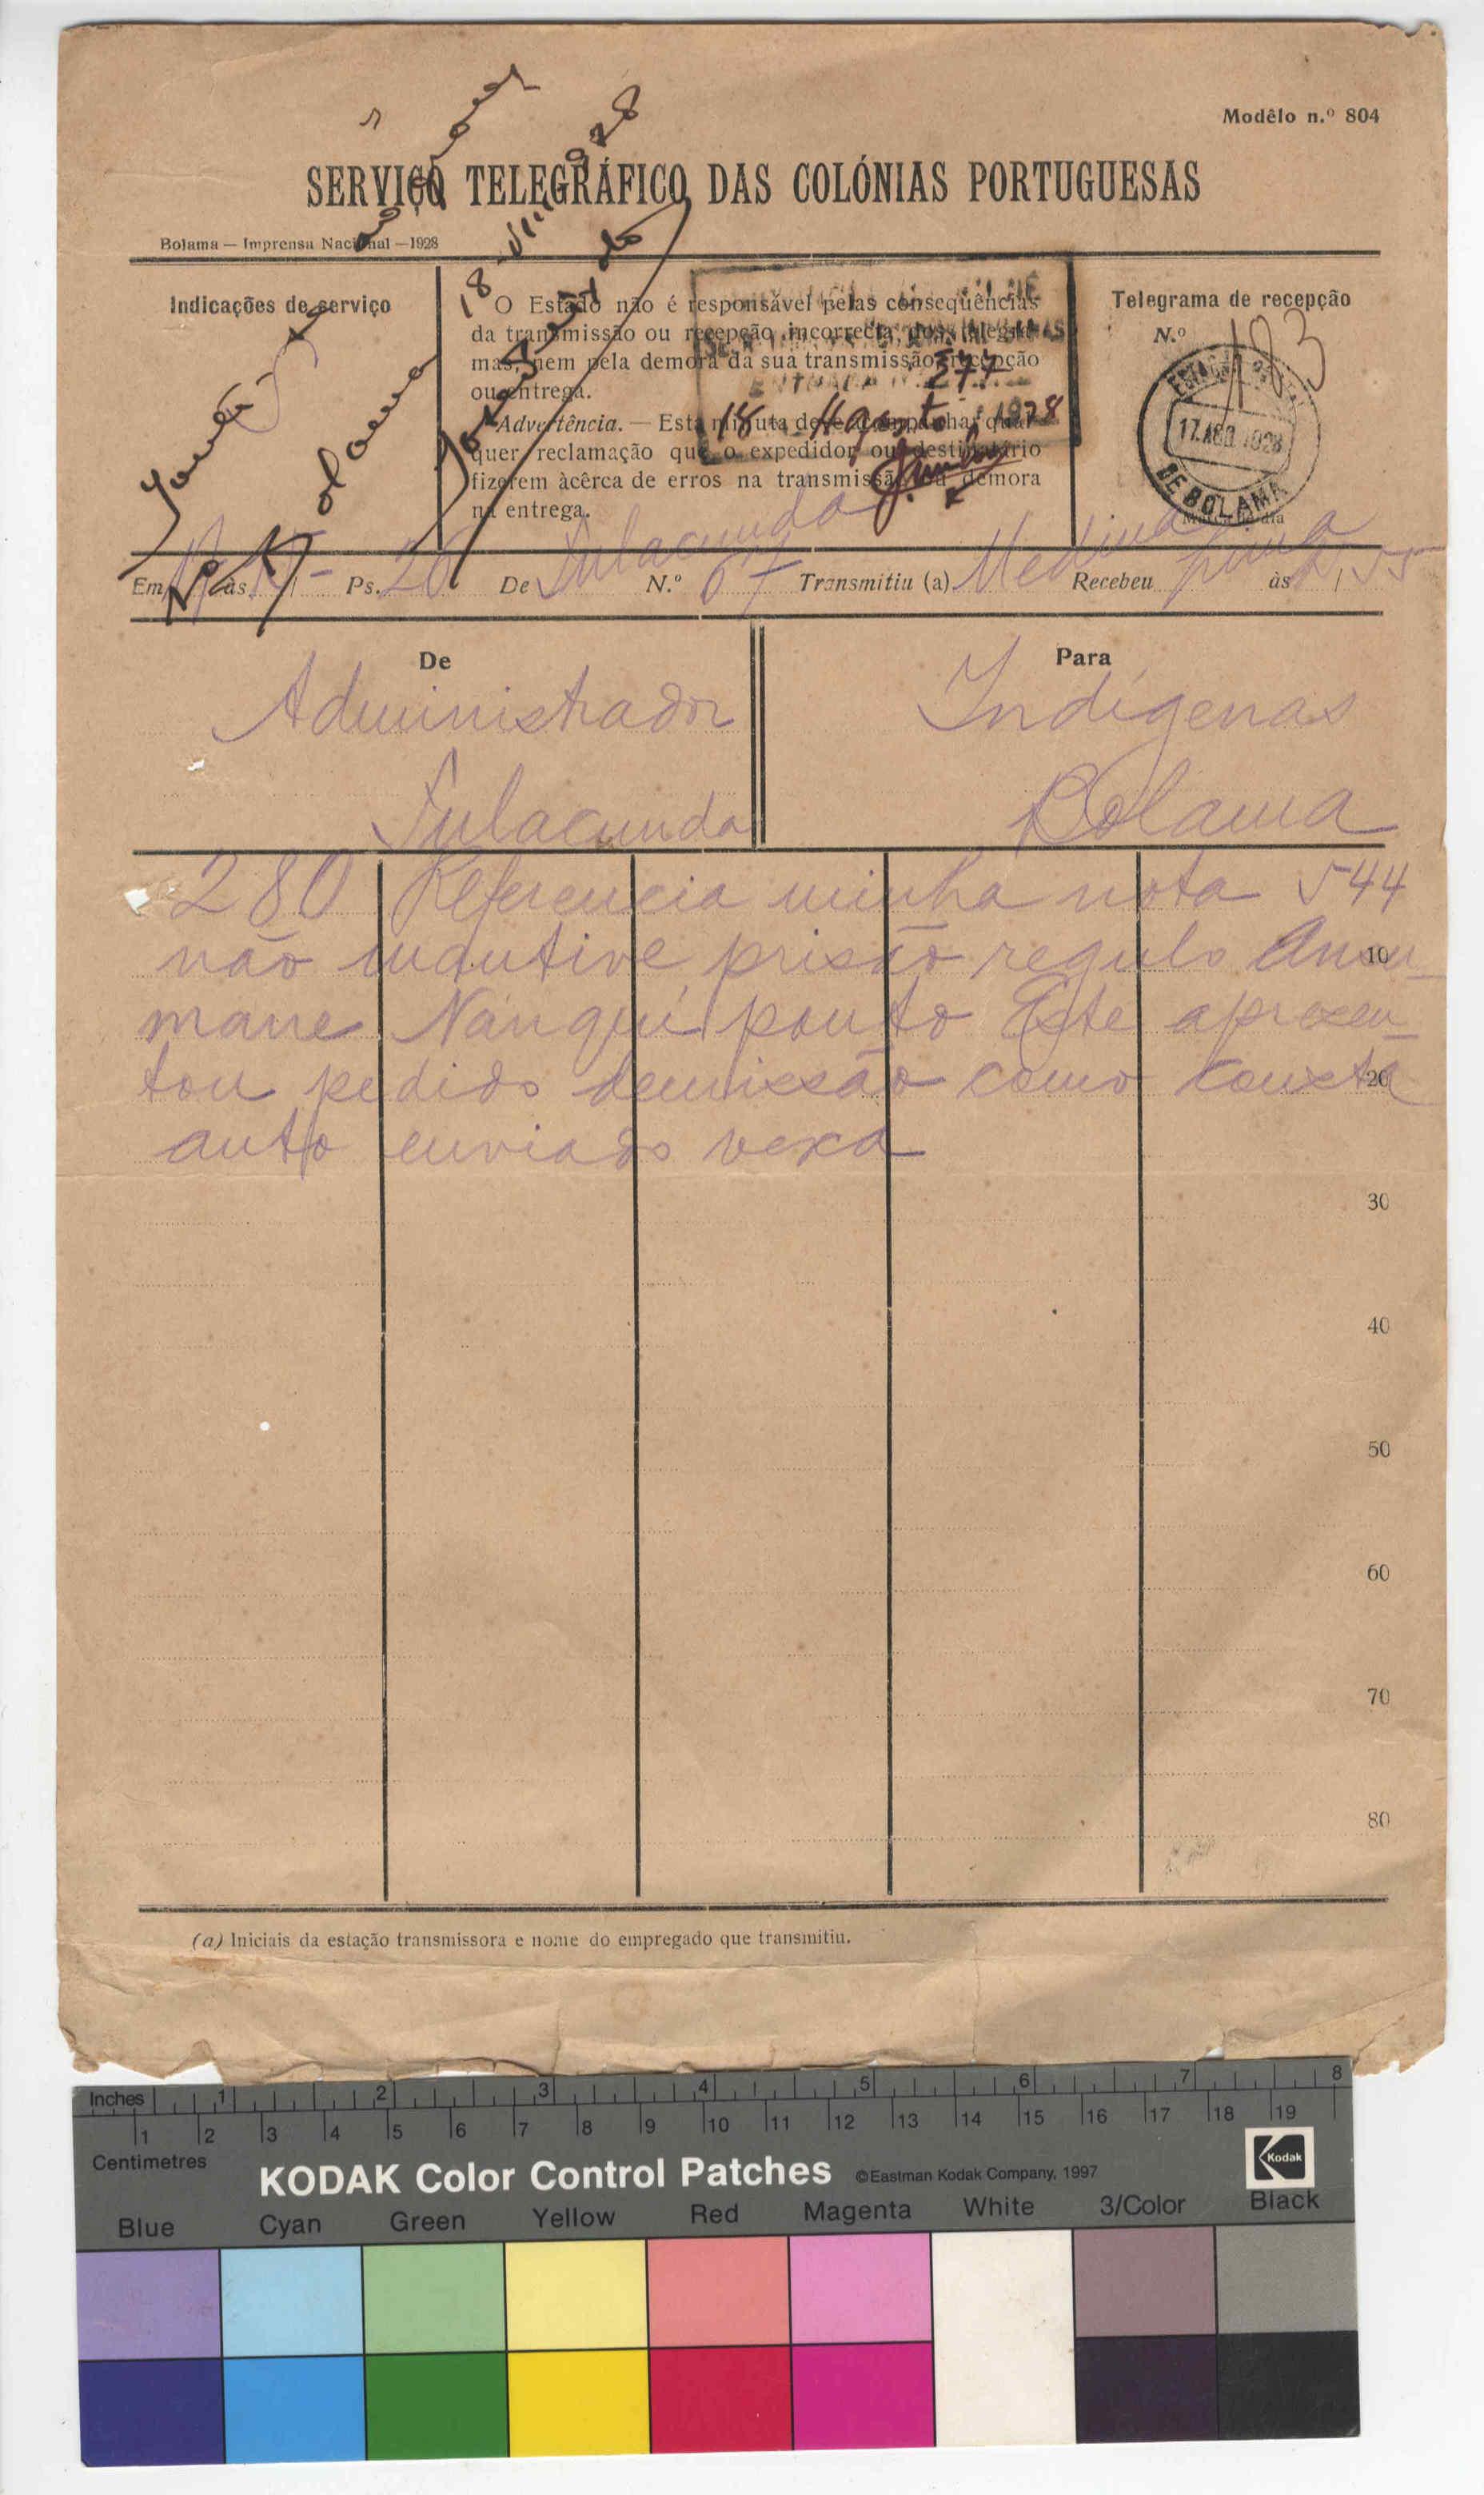 Modêlo n.º 804
SERVIÇO TELEGRÁFICO DAS COLÓNIAS PORTUGUESAS
Bolama — Imprensa Nacional — 1928
Indicações de serviço
O Estado não é responsável pelas conseqüências
da transmissão ou recepção incorrecta dos telegra-
mas, nem pela demora da sua transmissão, recepção
ou entrega.
Advertência. — Esta minuta deve acompanhar qual-
quer reclamação que o expedidor ou destinatário
fizerem àcêrca de erros na transmissão ou demora
na entrega.
18 VIII 928
277
18 Agosto 1928
Telegrama de recepção
N.º 193
17.AGO.1928
DE BOLAMA
Em às Ps. 26 De Fulacunda N.º 67 Transmitiu (a) Medina Recebeu às 55
De
Administrador
Fulacunda
Para
Indígenas
Bolama
280 Referencia minha nota 544
não mantive prisão regulo Ansu-
mane Nanqui ponto Este apresen-
tou pedido demissão como consta
auto enviado vexa
10
20
30
40
50
60
70
80
(a) Iniciais da estação transmissora e nome do empregado que transmitiu.
Inches 1 2 3 4 5 6 7 8
1 2 3 4 5 6 7 8 9 10 11 12 13 14 15 16 17 18 19
Centimetres
KODAK Color Control Patches ©Eastman Kodak Company, 1997 Kodak
Blue Cyan Green Yellow Red Magenta White 3/Color Black